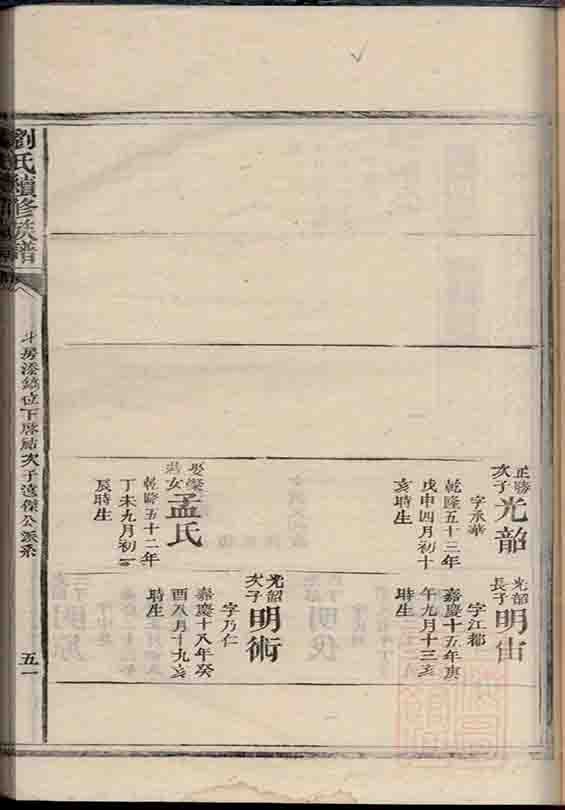 正勝
次子
光韶
字承華
乾隆五十三年
戊申四月初十
亥時生
女
孟氏
乾隆五十二年
丁未九月初一
辰時生
光韶
長子
明由
字江都
嘉慶十五年庚
午九月十三亥
時生
光韶
次子
明術
字乃仁
嘉慶十八年癸
酉八月十九亥
時生
劉氏續修族譜
斗房 位下啓 次子遠傑公派系
五一